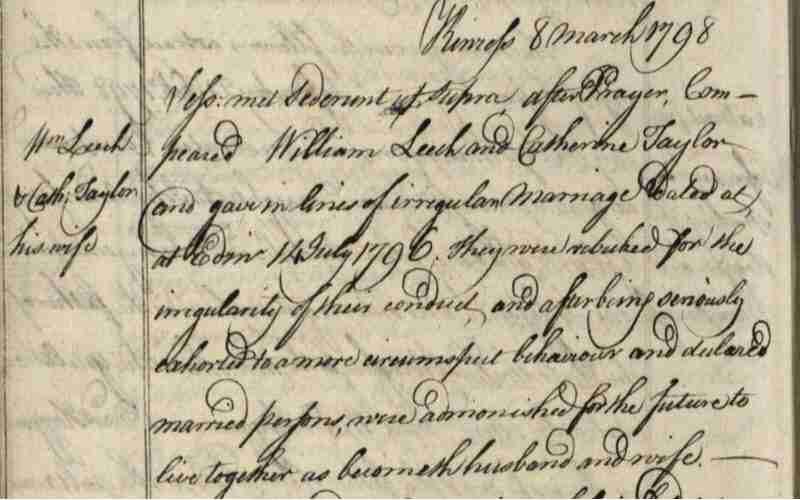 Kinross 8 March 1798
Sess: met Sederunt ut supra, after Prayer, Com-
Wm Leech
peared William Leech and Catherine Taylor
& Cath: Taylor
and gave in lines of irregular Marriage Dated at
his wife
at Edinr 14 July 1796. They were rebuked for the
irregularity of their conduct, and after being seriously
exhorted to a more circumspect behaviour and declared
married persons, were admonished for the future to
live together as becometh husband and wife. —